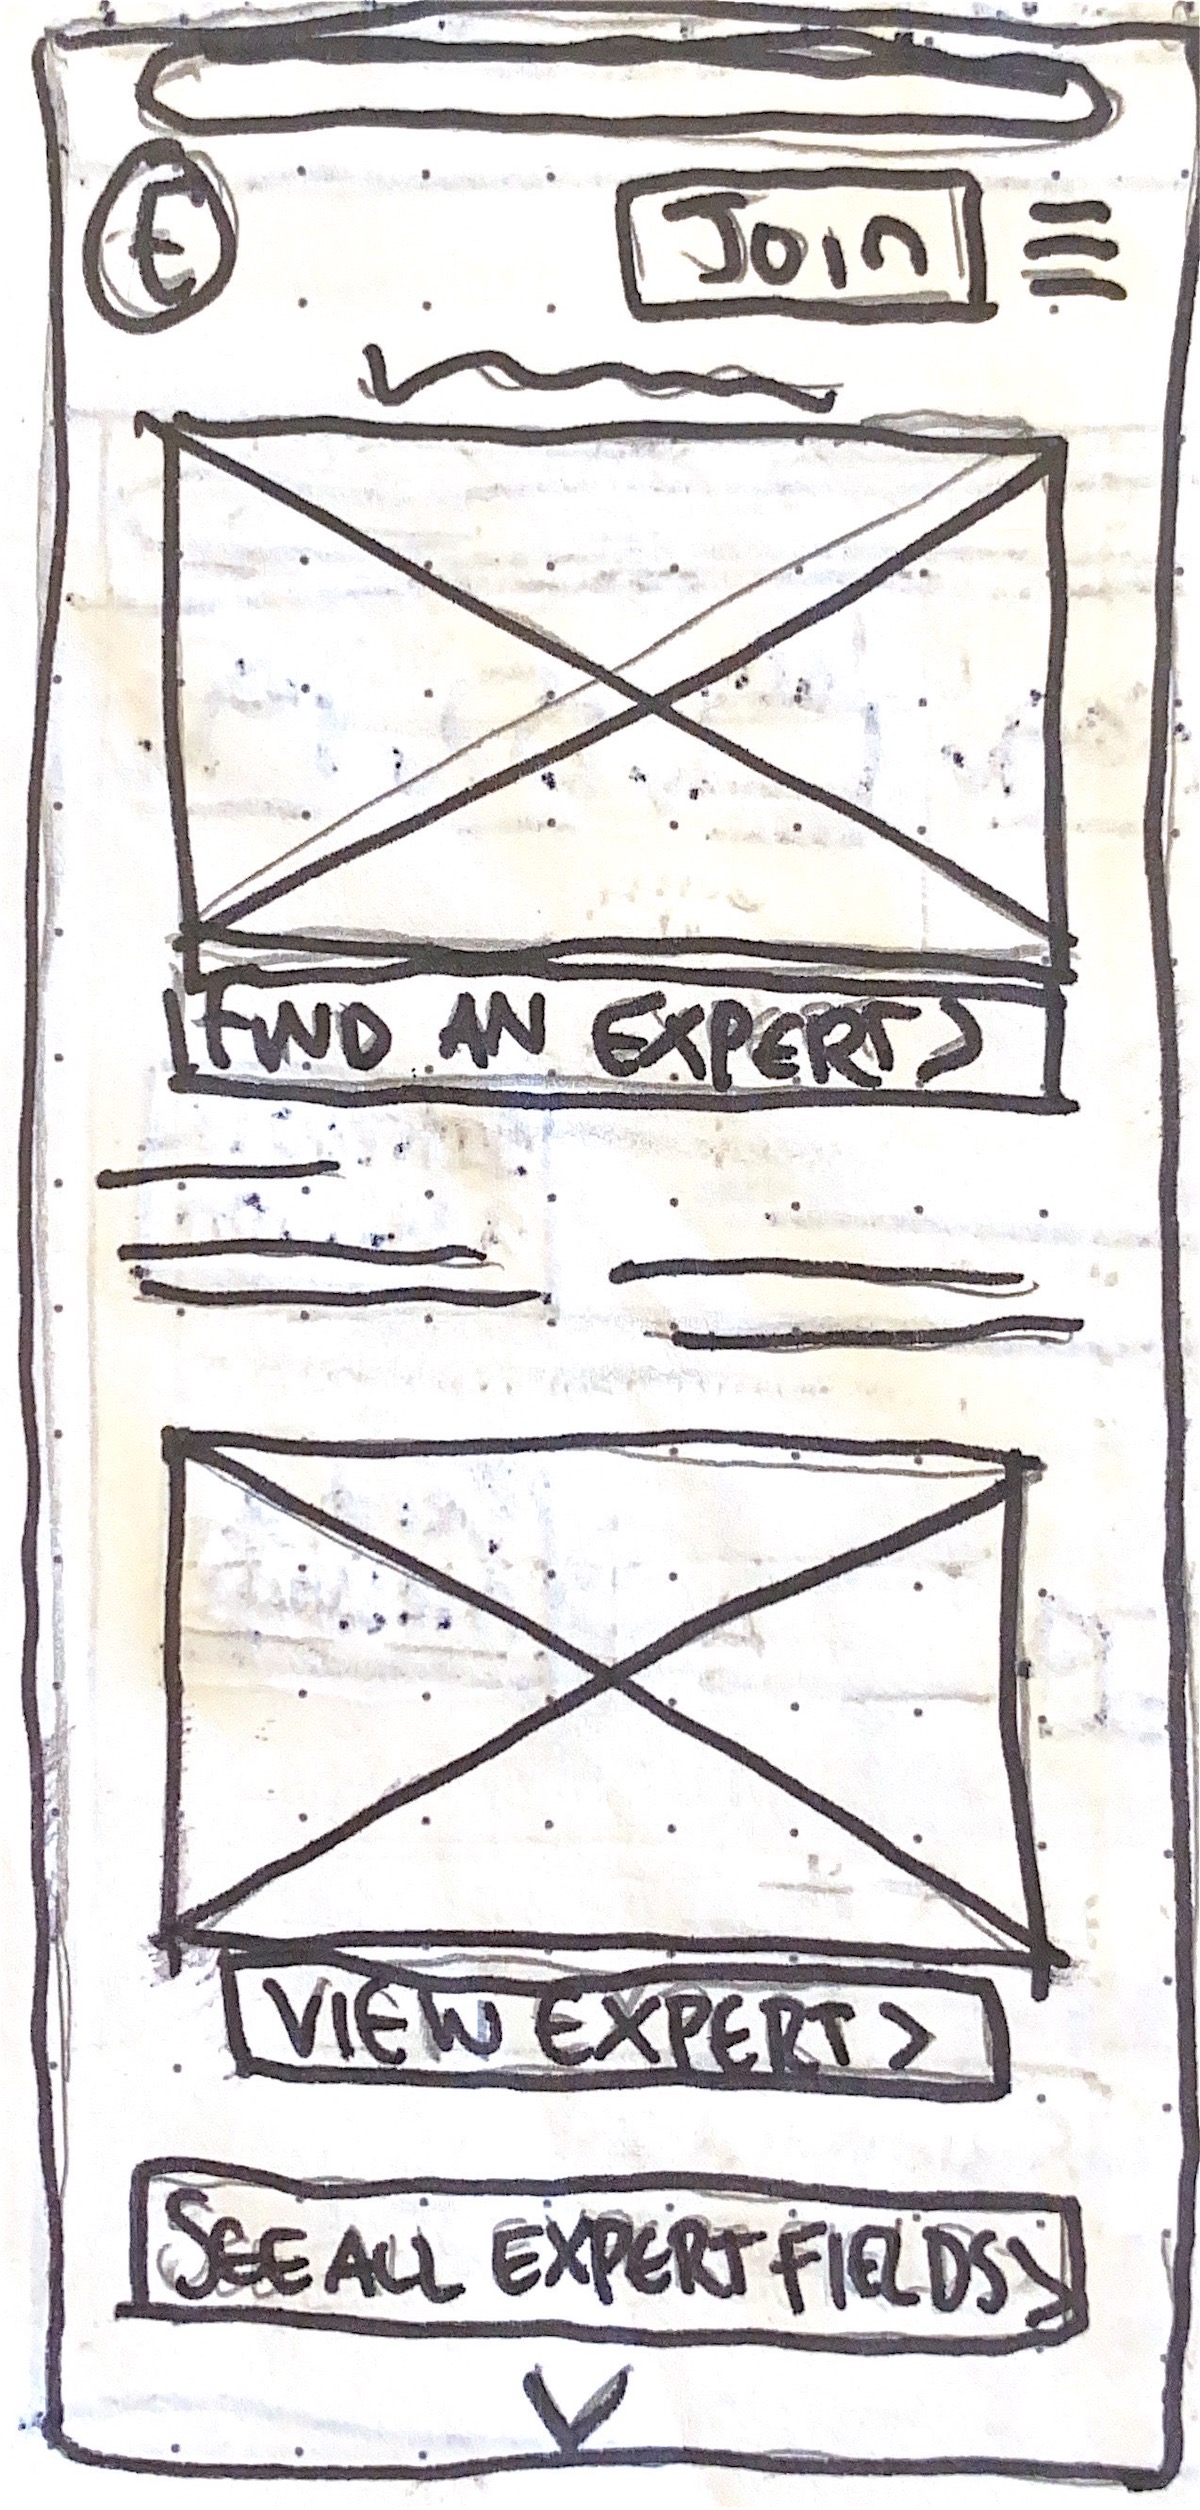 E
Join
FIND AN EXPERT >
VIEW EXPERT >
SEE ALL EXPERT FIELDS >